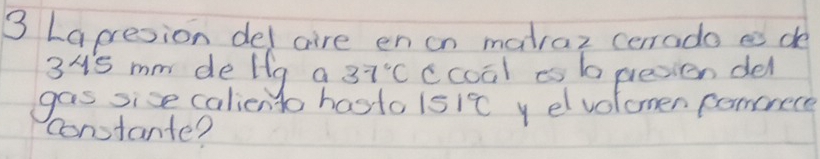 3 La presion del aire en un matraz cerrado es de
345 mm de Hg a 37°C ¿cual es la presion del
gas si se caliento hasta 151°C y el volumen permanece
constante?